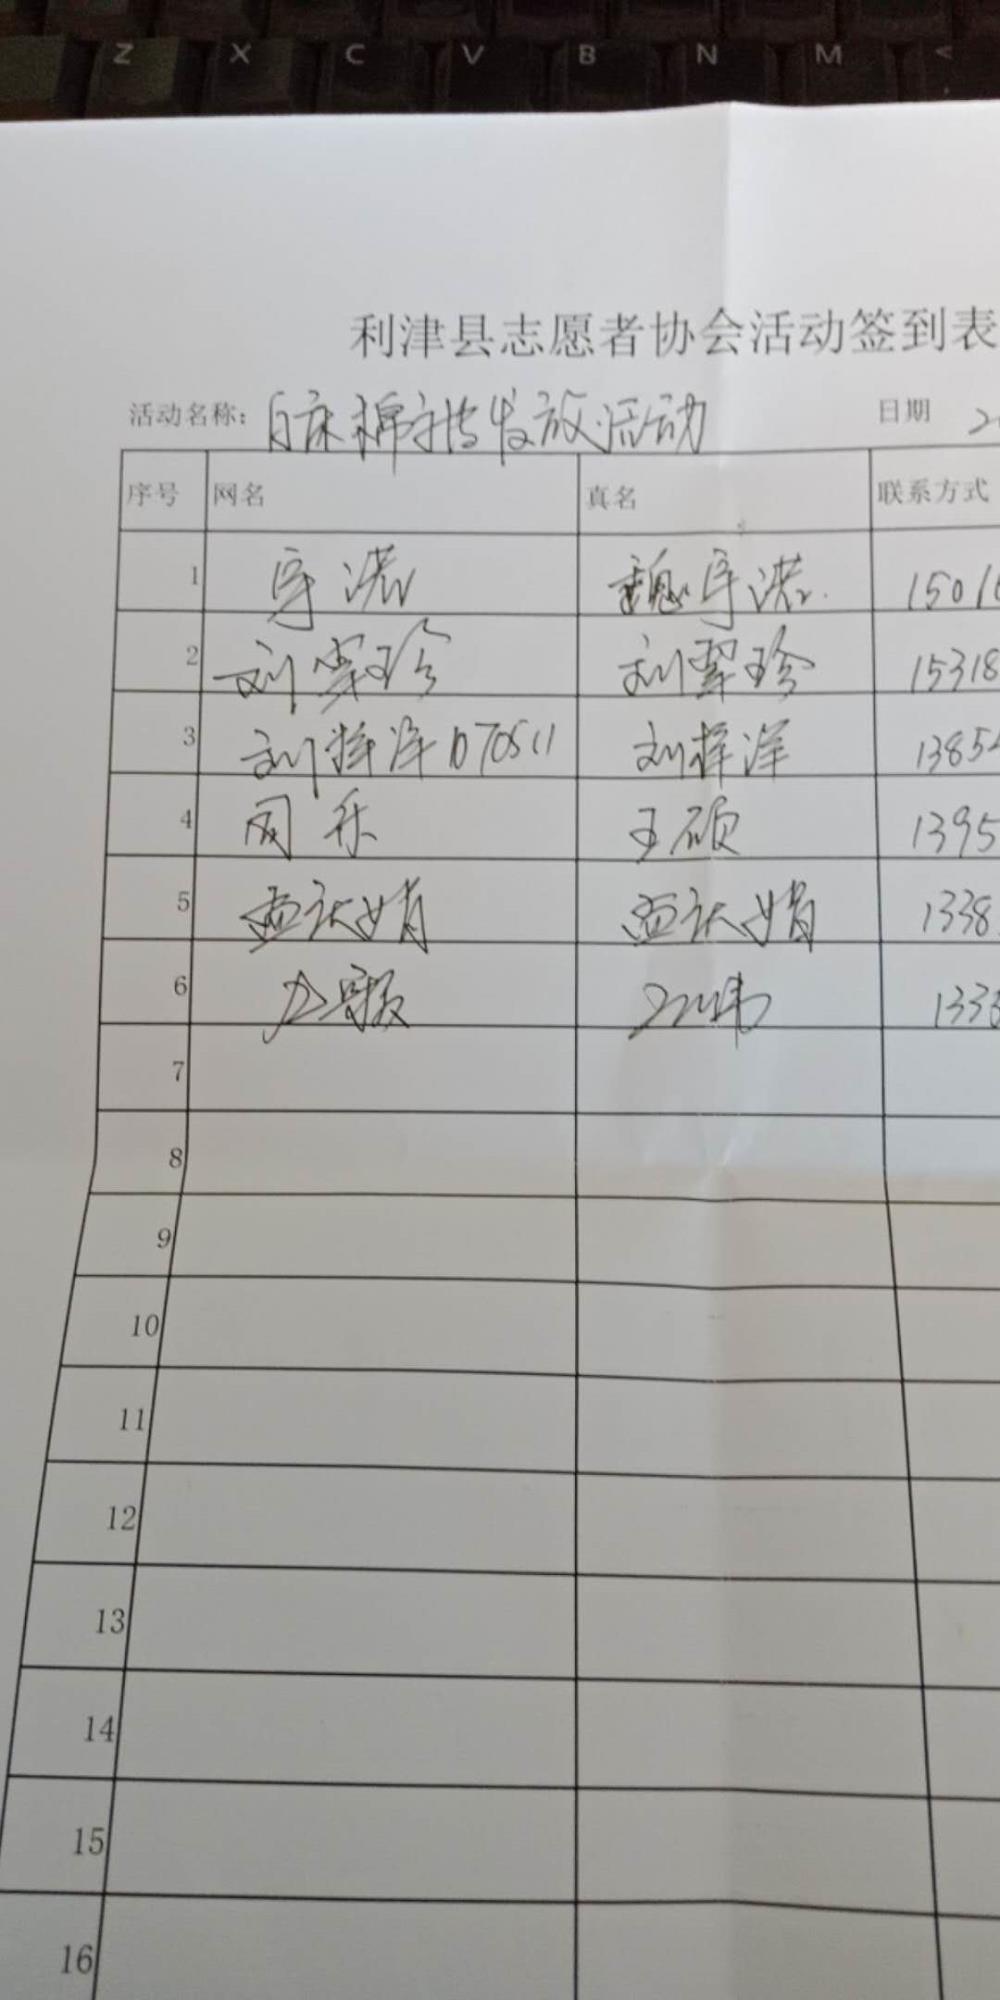 Z X C V B N M <
利津县志愿者协会活动签到表
活动名称: 发放活动 日期 2
序号 网名 真名 联系方式
1 宇诺 魏宇诺 1501
2 刘翠珍 刘翠珍 15318
3 刘梓洋070511 刘梓洋 1385
4 王硕 1395
5 孟 娟 孟 娟 1338
6 133
7
8
9
10
11
12
13
14
15
16